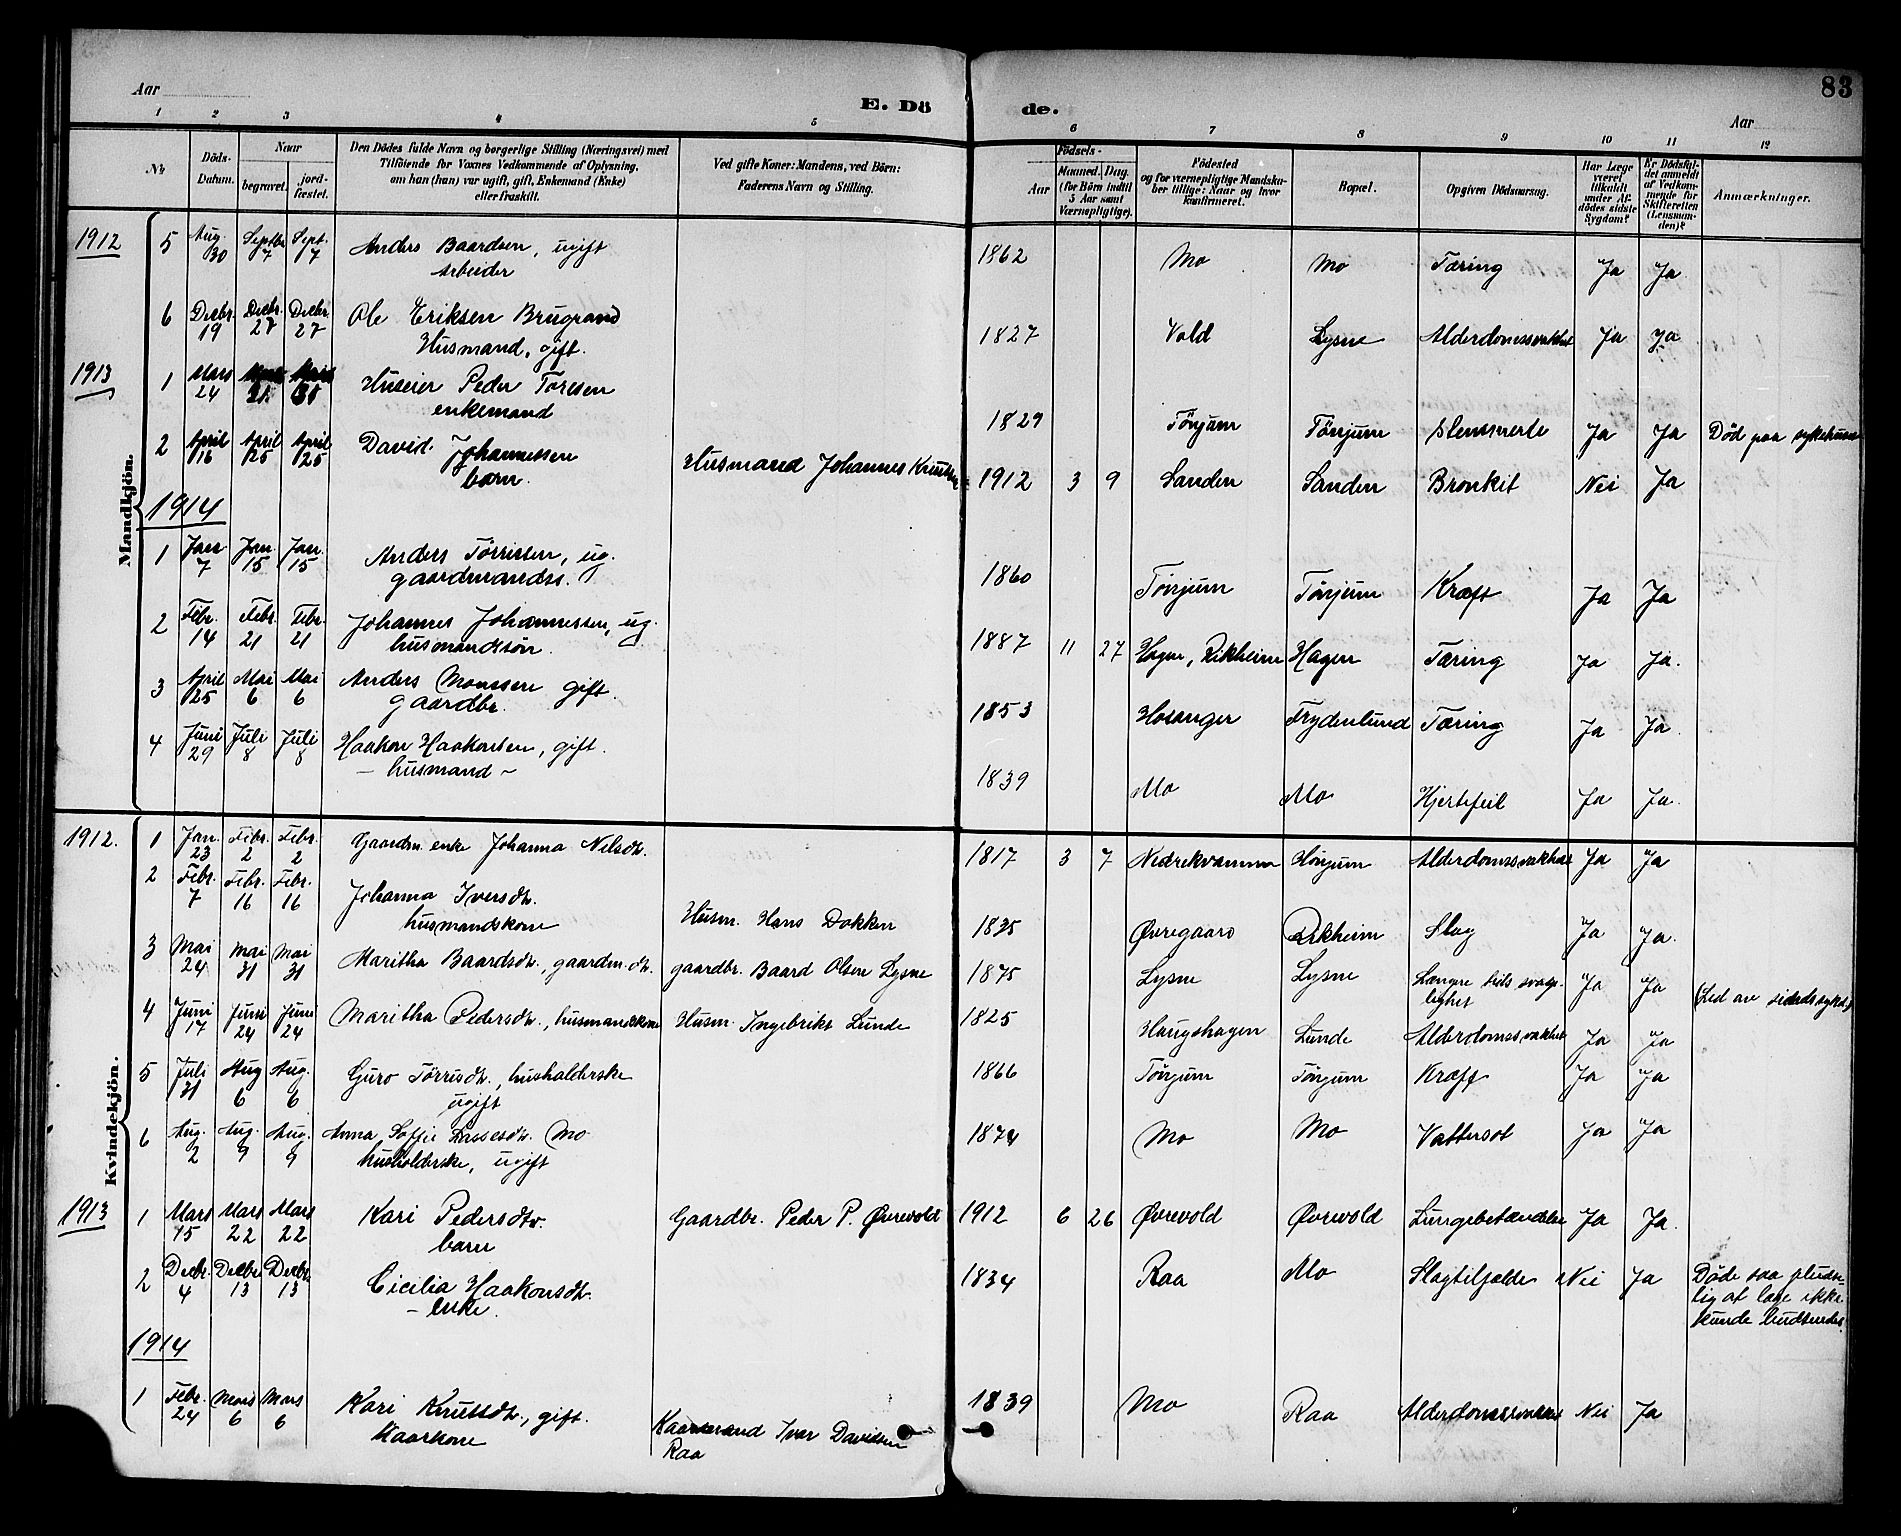 83
Aar
E. Dö
de.
Aar
1 2 3 4 5 6 7 8 9 10 11 12
No
Döds-Datum.
Naar
begravet.
jord-fæstet.
Den Dödes fulde Navn og borgerlige Stilling (Næringsvei) med
Tilföiende for Voxnes Vedkommende af Oplysning,
om han (hun) var ugift, gift, Enkemand (Enke)
eller fraskilt.
Ved gifte Koner: Mandens, ved Börn:
Faderens Navn og Stilling.
Födsels-
Aar
Maaned. Dag.
(for Börn indtil
5 Aar samt
Værnepligtige).
Födested
og for værnepligtige Mandska-
ber tillige: Naar og hvor
konfirmeret.
Bopæl.
Opgiven Dödsaarsag.
Har Læge
været
tilkaldt
under Af-
dödes sidste
Sygdom?
Er Dödsfal-
det anmeldt
af Vedkom-
mende for
Skifteretten
(Lensman-
den)?
Anmærkninger.
Mandkjön.
1912 5 Aug. 30 Septbr 7 Sept. 7 Anders Baardsen, ugift 1862 Mo Mo Tæring Ja Ja
Arbeider
6 Decbr. 19 Decbr. 27 Decbr 27 Ole Eriksen Brugrand 1827 Vold Lysne Alderdomssvakhet Ja Ja
Husmand, gift.
1913 1 Mars 24 Mars 31 Mars 31 Huseier Peder Toresen
enkemand 1829 Tönjum Tönjum Ja Ja Död paa sykehuset
2 April 16 April 25 April 25 David Johannessen Husmand Johannes Knutsen 1912 3 9 Sanden Sanden Bronkit Nei Ja
barn.
1914
1 Jan 7 Jan. 15 Jan. 15 Anders Törrissen, ug. 1860 Tönjum Tönjum Kræft Ja Ja
gaardmandss.
2 Febr. 14 Febr. 21 Febr. 21 Johannes Johannessen, ug. 1887 11 27 Hagen, Rikheim Hagen Tæring Ja Ja.
husmandssön.
3 April 25 Mai 6 Mai 6 Anders Monssen gift. 1853 Hosanger Frydenlund Tæring Ja Ja.
gaardbr.
4 Juni 29 Juli 8 Juli 8 Haakon Haakonsen, gift. 1839 Mo Mo Hjertefeil Ja Ja.
– husmand –
Kvindekjön.
1912. 1 Jan. 23 Febr. 2 Febr. 2 Gaardm. enke Johanna Nilsdtr. 1817 3 7 Nedrekvamme Hönjum Alderdomssvakhet Ja Ja
2 Febr. 7 Febr. 16 Febr. 16 Johanna Iversdtr. Husm. Hans Dokken 1835 Øvregaard Rikheim Slag Ja Ja.
husmandskone
3 Mai 24 Mai 31 Mai 31 Maritha Baardsdtr., gaardm.dtr. gaardbr. Baard Olsen Lysne 1875 Lysne Lysne Længre tids svage- Ja Ja (Led av sindssykd.)
lighet
4 Juni 17 Juni 24 Juni 24 Maritha Pedersdtr., husmandskone Husm. Ingebrikt Lunde 1825 Haugshagen Lunde Alderdomssvakhet Ja Ja
5 Juli 31 Aug 6 Aug. 6 Guro Törrisdtr., husholderske 1866 Tönjum Tönjum Kræft Ja Ja
ugift
6 Aug. 2 Aug. 9 Aug. 9 Anna Soffie Lassesdtr. Mo 1874 Mo Mo Vattersot Ja Ja
husholderske, ugift
1913 1 Mars 15 Mars 22 Mars 22 Kari Pedersdtr. Gaardbr. Peder P. Øvrevold 1912 6 26 Øvrevold Øvrevold Lungebetændelse Ja Ja.
barn
2 Decbr. 4 Decbr 13 Decbr. 13 Cicilia Haakonsdtr. 1834 Raa Mo Slagtilfælde Nei Ja Döde saa pludse-
– enke. lig at læge ikke
kunde budsendes.
1914
1 Febr. 24 Mars 6 Mars 6 Kari Knutsdtr., gift. Kaarmand Ivar Davidsen 1839 Mo Raa Alderdomssvakhet Nei Ja
Kaarkone Raa